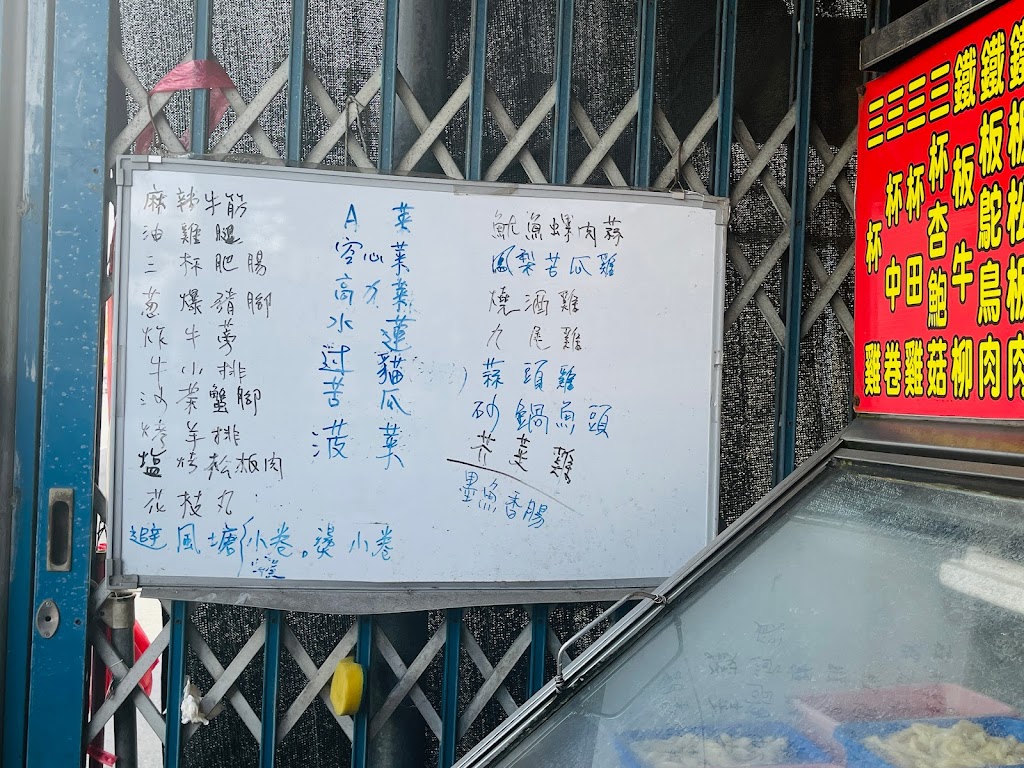 麻辣牛筋
油雞腿
三杯肥腸
蔥爆豬腳
炸牛蒡
牛小排
沙茶蟹腳
烤羊排
塩烤松板肉
花枝丸
避風塘小卷。燙小卷
A菜
空心菜
高力菜
水蓮
过貓
苦瓜
菠菜
魷魚螺肉蒜
鳳梨苦瓜雞
燒酒雞
九尾雞
蒜頭雞
砂鍋魚頭
芥菜雞
墨魚香腸
鐵板松板肉
鐵板鴕鳥肉
鐵板牛柳
三杯杏鮑菇
三杯田雞
三杯中卷
三杯雞